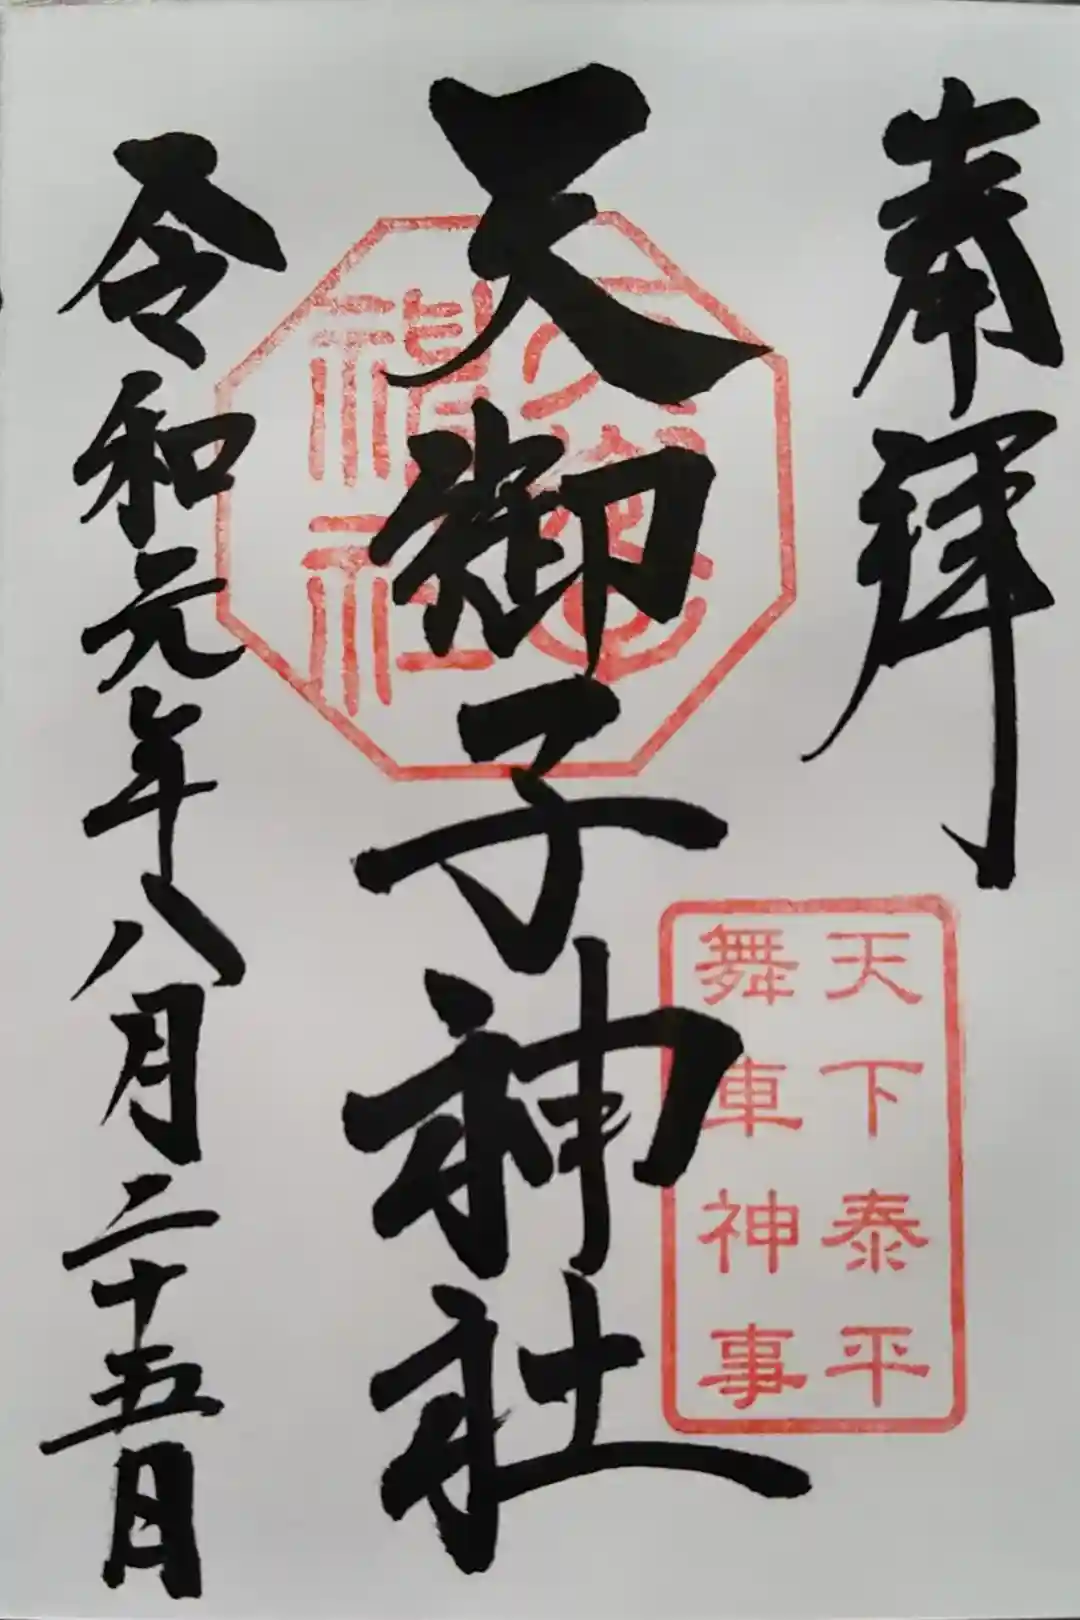 奉拝
天御子神社
天下泰平
舞車神事
令和元年八月二十五日